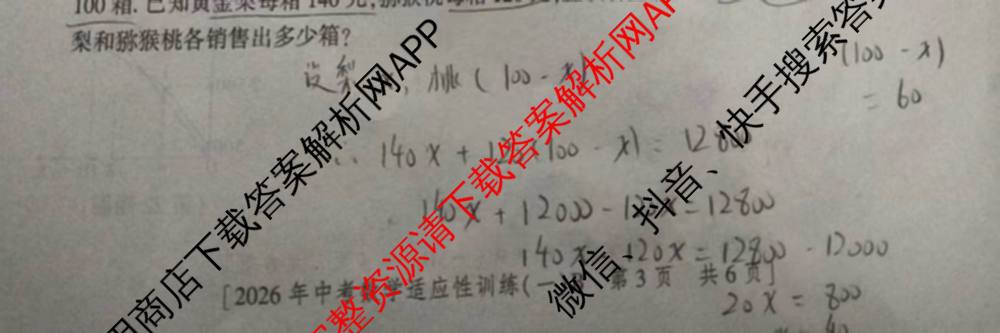 100箱. 已知黄金梨每箱140元,猕猴桃每箱
梨和猕猴桃各销售出多少箱?
设梨 桃(100-x)
(100-x)
=60
140x+12 100-x)=128
140x+12000-1 x=12800
140x 120x=12800-12000
[2026年中考 适应性训练(一 第3页 共6页]
20x=800
40
用商店下载答案解析网APP
整资源请下载答案解析网APP
微信、抖音、快手搜索答案